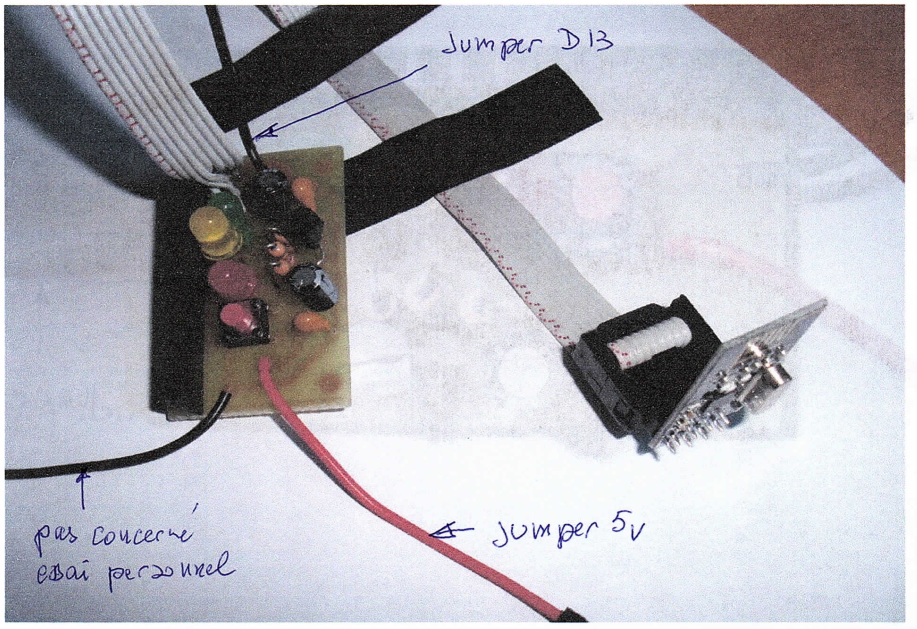 Jumper D13
pas concerné
essai personnel
Jumper 5v